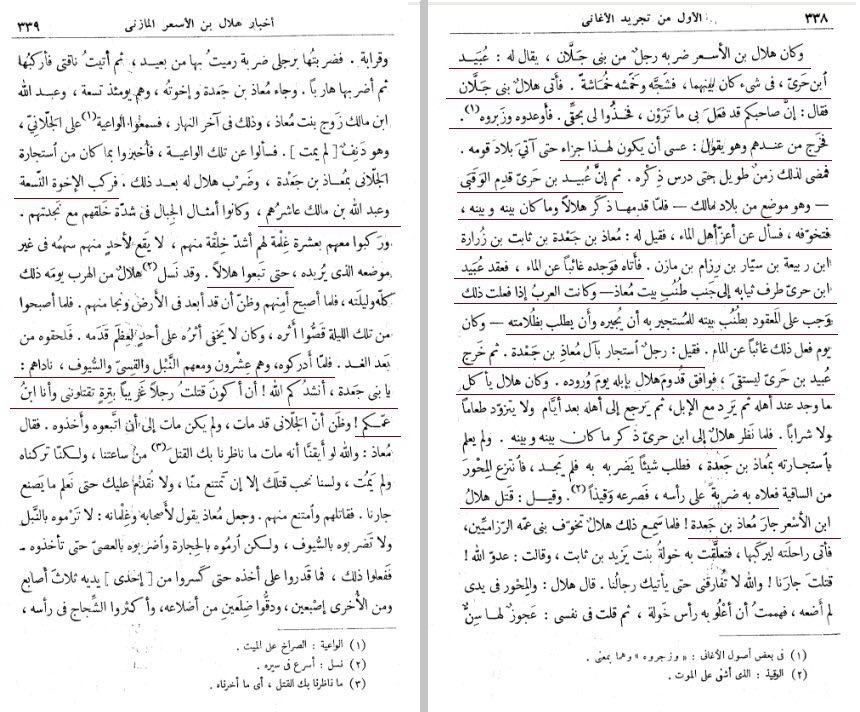 ٣٣٨ الأول من تجريد الأغانى
وكان هلال بن الأسعر ضربه رجلٌ من بنى جَلَّان ، يقال له : عُبَيد
ابن حَرىّ ، فى شىء كان بينهما ، فشجَّه وخَمشه خُماشةً . فأتى هلالٌ بنى جَلَّان
فقال : إنَّ صاحبكم قد فعل بى ما تَرَوْن ، فخُذُوا لى بحقِّى . فأوعدوه وزَبروه(١) .
فخَرج من عندهم وهو يقول : عسى أن يكون لهذا جزاء حتى آتىَ بلاد قومه .
فمضى لذلك زمنٌ طويل حتى درس ذِكْره . ثم إنَّ عُبيد بن حَرىّ قدِم الوَقَبَى
— وهو موضع من بلاد مالك — فلمّا قدمها ذَكر هلالاً وما كان بينه وبينه ،
فتخوّفه ، فسأل عن أعزّ أهل الماء ، فقيل له : مُعاذ بن جَعْدة بن ثابت بن زُرارة
ابن ربيعة بن سَيّار بن رِزام بن مازن . فأتاه فوَجده غائباً عن الماء ، فعقد عُبيد
ابن حرىّ طرف ثيابه إلى جَنب طُنُب بيت مُعاذ — وكانت العربُ إذا فعلت ذلك
وَجب على المعقود بطُنُب بيته للمستجير به أن يُجيره وأن يطلب بظُلامته — وكان
يوم فعل ذلك غائباً عن الماء . فقيل : رجلٌ استجار بآل مُعاذ بن جَعْدة . ثم خرج
عُبيد بن حَرىّ ليستقىَ ، فوافق قُدومَ هلال بإبله يومَ وُروده . وكان هلال يأكل
ما وجد عند أهله ثم يَرِد مع الإبل ، ثم يَرجع إلى أهله بعد أيّام ولا يتزوّد طعاماً
ولا شراباً . فلما نَظر هلال إلى ابن حرىّ ذكر ما كان بينه وبينه . ولم يعلم
باستجارته بمُعاذ بن جَعدة ، فطلب شيئاً يَضربه به فلم يَجد ، فانتزع المِحْور
من السانية فعلاه به ضربةً على رأسه ، فصرعه وَقيذاً(٢) . وقيل : قَتل هلالُ
ابن الأسْعر جارَ مُعاذ بن جَعدة ! فلما سمع ذلك هلالٌ تخوّف بنى عمّه الرِّزاميِّين،
فأتى راحلتَه ليركبها ، فتعلَّقت به خولةُ بنت يَزيد بن ثابت ، وقالت : عدوّ الله !
قتلتَ جارَنا ! والله لا تُفارقنى حتى يأتيك رجالُنا . قال هلال : والمِحْور فى يدى
لم أضعه ، فهممتُ أن أعْلُوَ به رأس خَولة ، ثم قلت فى نفسى : عَجوزٌ لها سِنٌّ
(١) فى بعض أصول الأغانى : « وزجروه » وهما بمعنى .
(٢) الوقيذ : الذى أشفى على الموت .
أخبار هلال بن الأسعر المازنى ٣٣٩
وقَرابة . فضربتُها برجلى ضَربة رَميتُ بها من بعيد ، ثم أتيتُ ناقتى فأركبُها
ثم أضربها هارباً . وجاء مُعاذ بن جَعدة و إخوتُه ، وهم يومئذ تسعة ، وعبد الله
ابن مالك زَوج بنت مُعاذ ، وذلك فى آخر النهار ، فسمعوا الواعية(١) على الجَلّانىّ ،
وهو دَنِفٌ [ لم يمت ] . فسألوا عن تلك الواعية ، فأُخبروا بما كان من استجارة
الجَلّانى بمُعاذ بن جَعْدة ، وضَرْب هلال له بعد ذلك . فركب الإخوة التِّسعة
وعبد الله بن مالك عاشرهم ، وكانوا أمثالَ الجِبال فى شدّة خَلقهم مع نَجدتهم .
ورَكبوا معهم بعشرة غِلْمة لهم أشدّ خِلْقة منهم ، لا يَقع لأحدٍ منهم سهمُه فى غير
موضعه الذى يُريده ، حتى تَبعوا هلالاً . وقد نَسل(٢) هلالٌ من الهرب يومَه ذلك
كلّه وليلَته ، فلما أصبح أمِنهم وظنّ أن قد أبعد فى الأرض ونجا منهم . فلما أصبحوا
من تلك الليلة قَصُّوا أثره ، وكان لا يَخفى أثرُه على أحدٍ لعِظَم قدَمه . فلَحقوه من
بعد الغد . فلمّا أدركوه، وهم عِشْرون ومعهم النَّبْل والقِسِىّ والسُّيوف ، ناداهم :
يا بنى جَعدة ، أَنشُدكم الله ! أن أكونَ قتلتُ رجلاً غريباً بتِرة تقتلونى وأنا ابنُ
عَمّكم ! وظنّ أنّ الجَلّانى قد مات ، ولم يكن مات إلى أن اتّبعوه وأخذوه . فقال
مُعاذ : والله لو أيقنَّا أنه مات ما ناظرنا بك القتلَ(٣) من ساعتنا ، ولكنّا تركناه
ولم يَمُت ، ولسنا نحب قتلَك إلا إن تَمتنع منا ، ولا نُقدم عليك حتى نَعلم ما يَصنع
جارنا . فقاتلهم وامتنع منهم . وجعل مُعاذ يقول لأصحابه وغِلْمانه : لا تَرموه بالنَّبْل
ولا تَضربوه بالسُّيوف ، ولكن ارمُوه بالحِجارة واضربوه بالعصىّ حتى تأخذوه .
ففَعلوا ذلك ، فما قدروا على أخذه حتى كَسروا من [ إحدى ] يديه ثلاث أصابع
ومن الأُخرى إصْبعين ، ودَقُّوا ضِلَعين من أضلاعه ، وأكثروا الشِّجاج فى رأسه ،
(١) الواعية : الصراخ على الميت .
(٢) نسل : أسرع فى سيره .
(٣) ما ناظرنا بك القتل ، أى ما أخرناه .